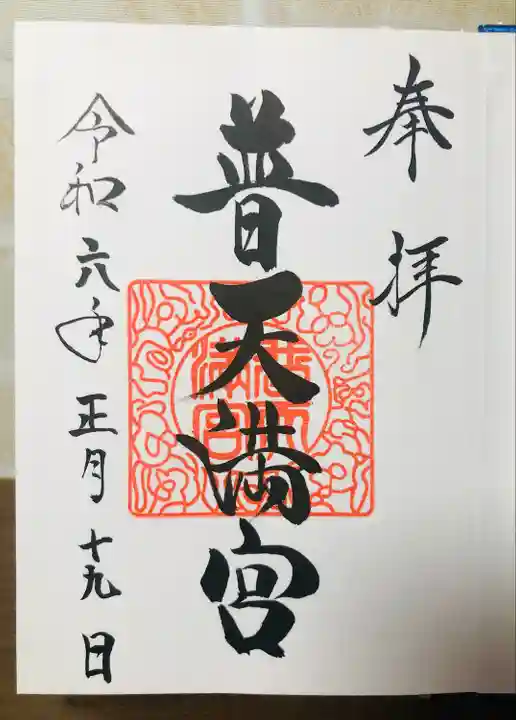 奉拝
普天満宮
令和六年正月十九日